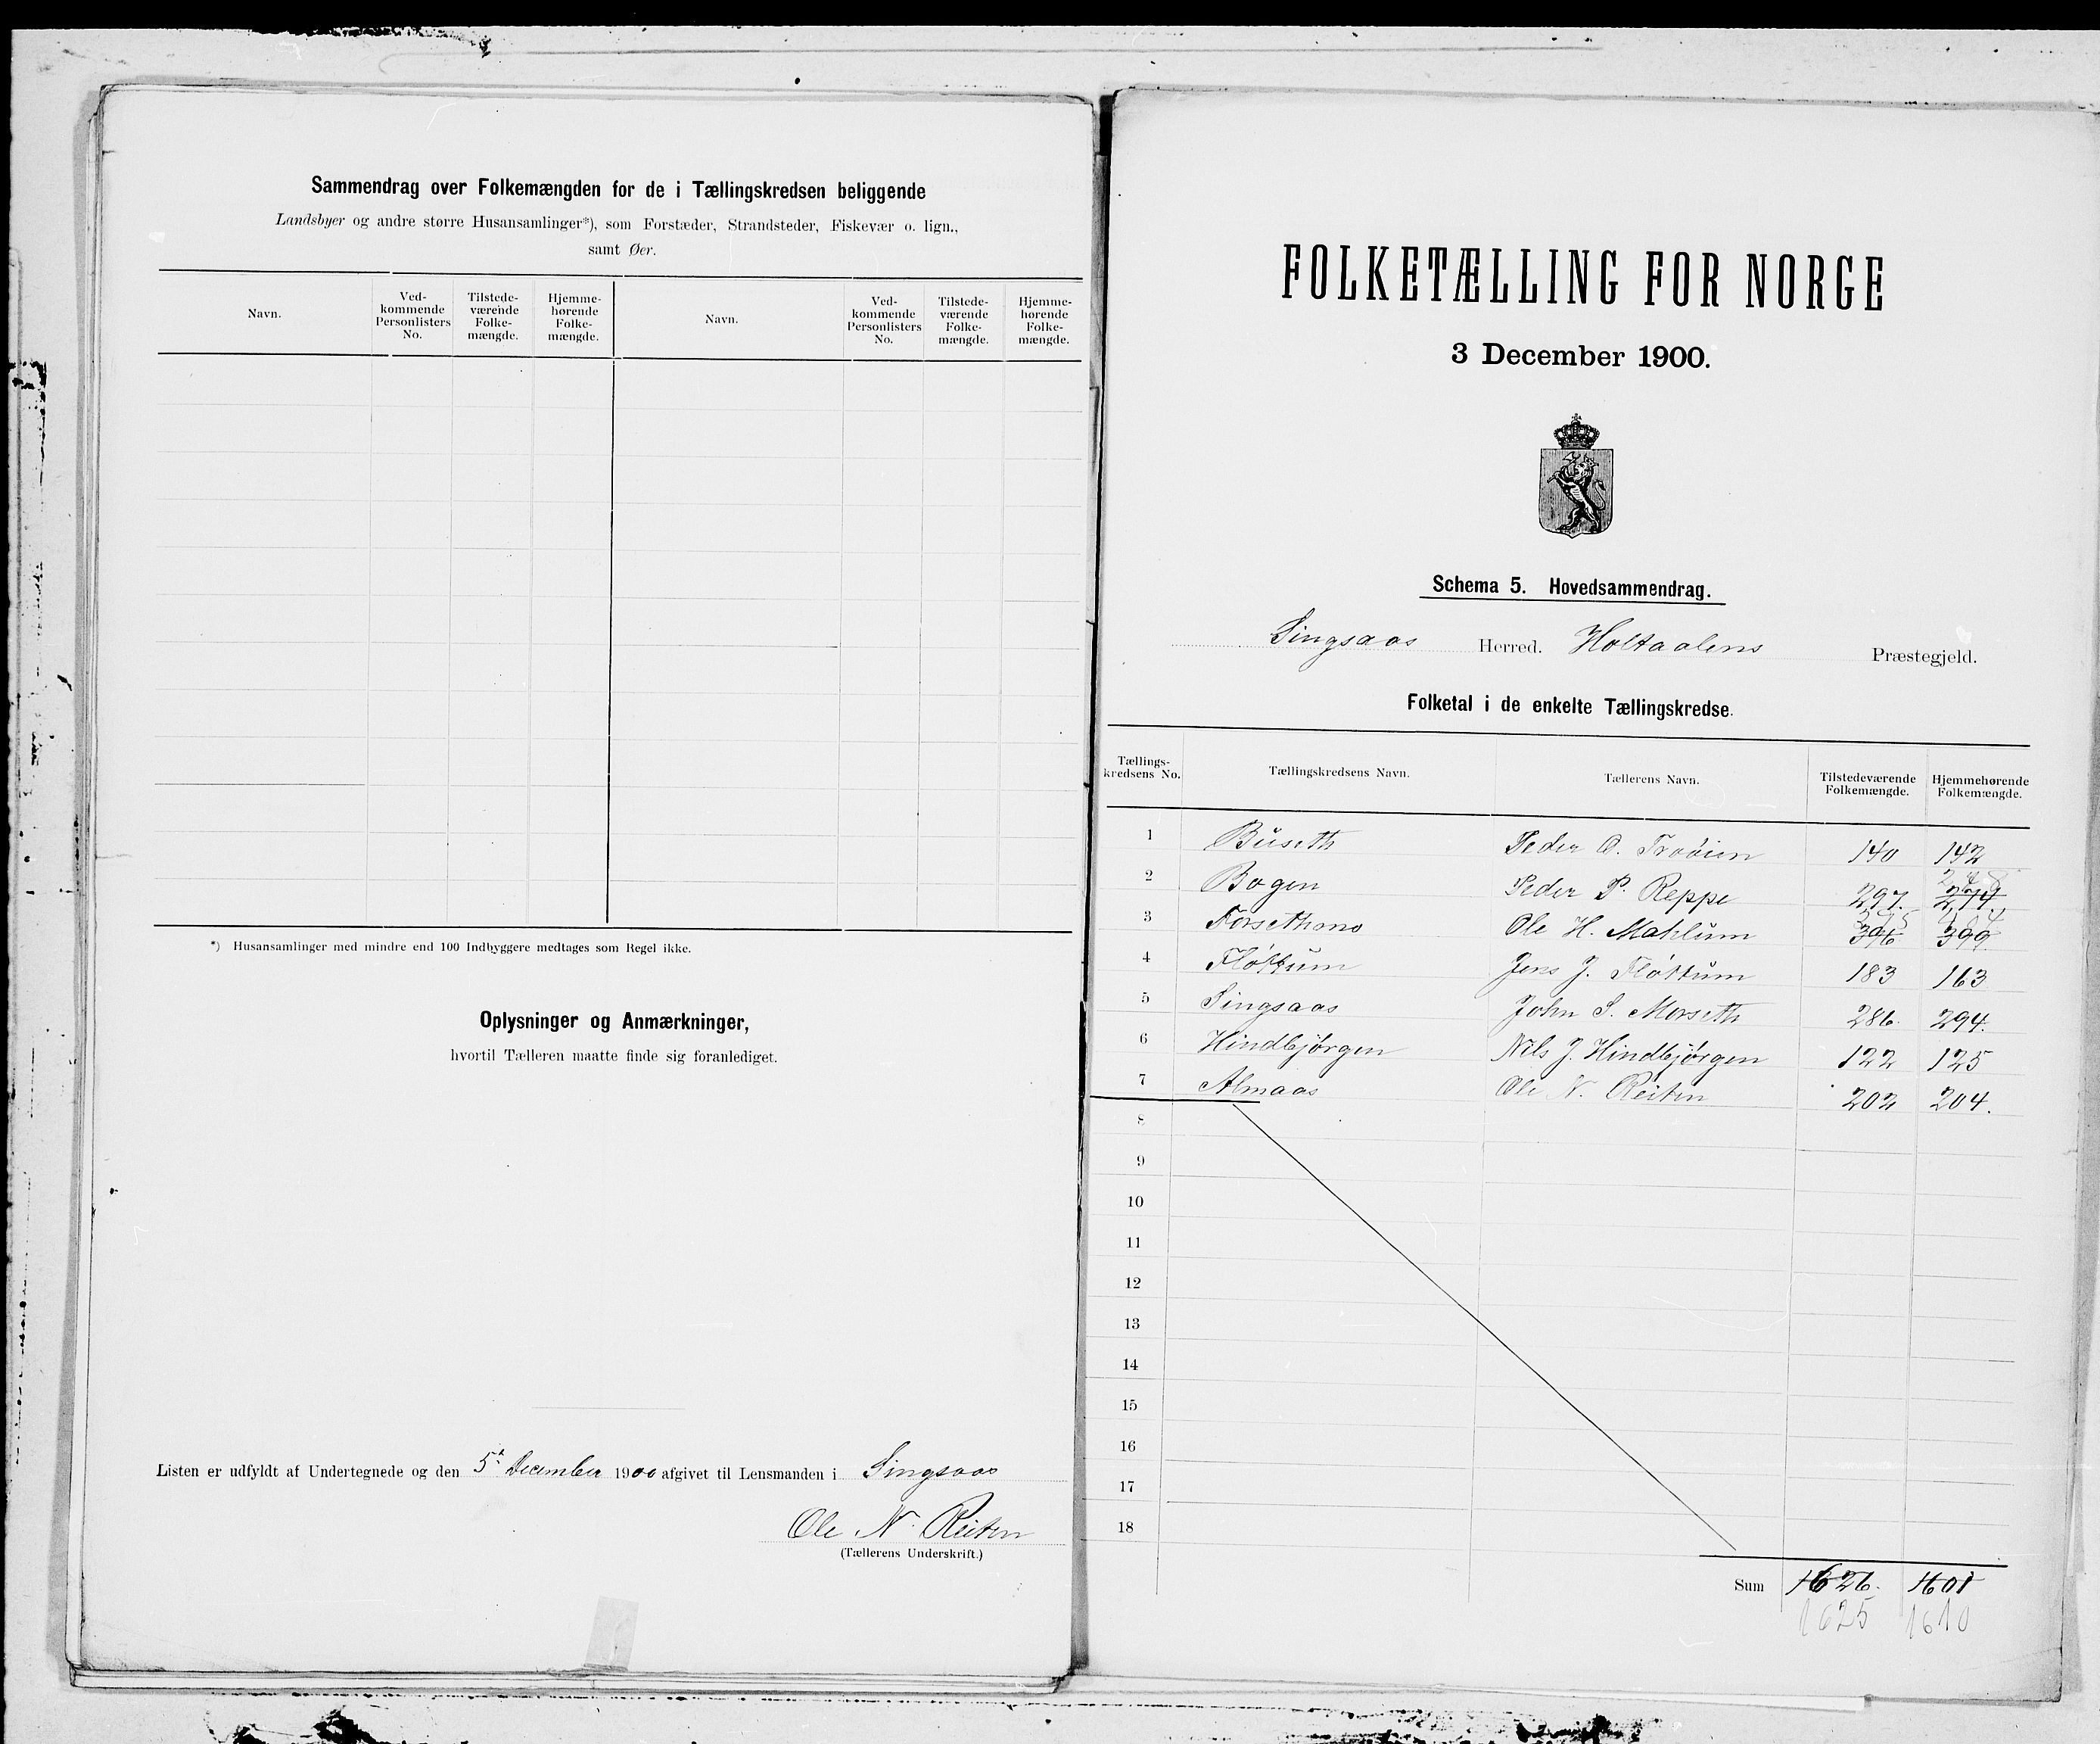 Sammendrag over Folkemængden for de i Tællingskredsen beliggende
Landsbyer og andre større Husansamlinger*), som Forstæder, Strandsteder, Fiskevær o. lign.,
samt Øer.
Navn. Ved-kommende Personlisters No. Tilstede-værende Folke-mængde. Hjemme-hørende Folke-mængde. Navn. Ved-kommende Personlisters No. Tilstede-værende Folke-mængde. Hjemme-hørende Folke-mængde.
*) Husansamlinger med mindre end 100 Indbyggere medtages som Regel ikke.
Oplysninger og Anmærkninger,
hvortil Tælleren maatte finde sig foranlediget.
Listen er udfyldt af Undertegnede og den 5t December 1900 afgivet til Lensmanden i Singsaas
Ole N. Reiten
(Tællerens Underskrift.)
FOLKETÆLLING FOR NORGE
3 December 1900.
Schema 5. Hovedsammendrag.
Singsaas Herred. Holtaalens Præstegjeld.
Folketal i de enkelte Tællingskredse.
Tællings-kredsens No. Tællingskredsens Navn. Tællerens Navn. Tilstedeværende Folkemængde. Hjemmehørende Folkemængde.
1 Buseth Peder O. Troøien 140 142
278
2 Bogen Peder P. Reppe 297. 274
395 404
3 Forsethmo Ole H. Mahlum 396 399
4 Fløttum Jens J. Fløttum 183 163
5 Singsaas John S. Morseth 286. 294.
6 Hindbjørgen Nils J. Hindbjørgen 122 125
7 Almaas Ole N. Reiten 202 204.
8
9
10
11
12
13
14
15
16
17
18
Sum 1626. 1601
1625 1610